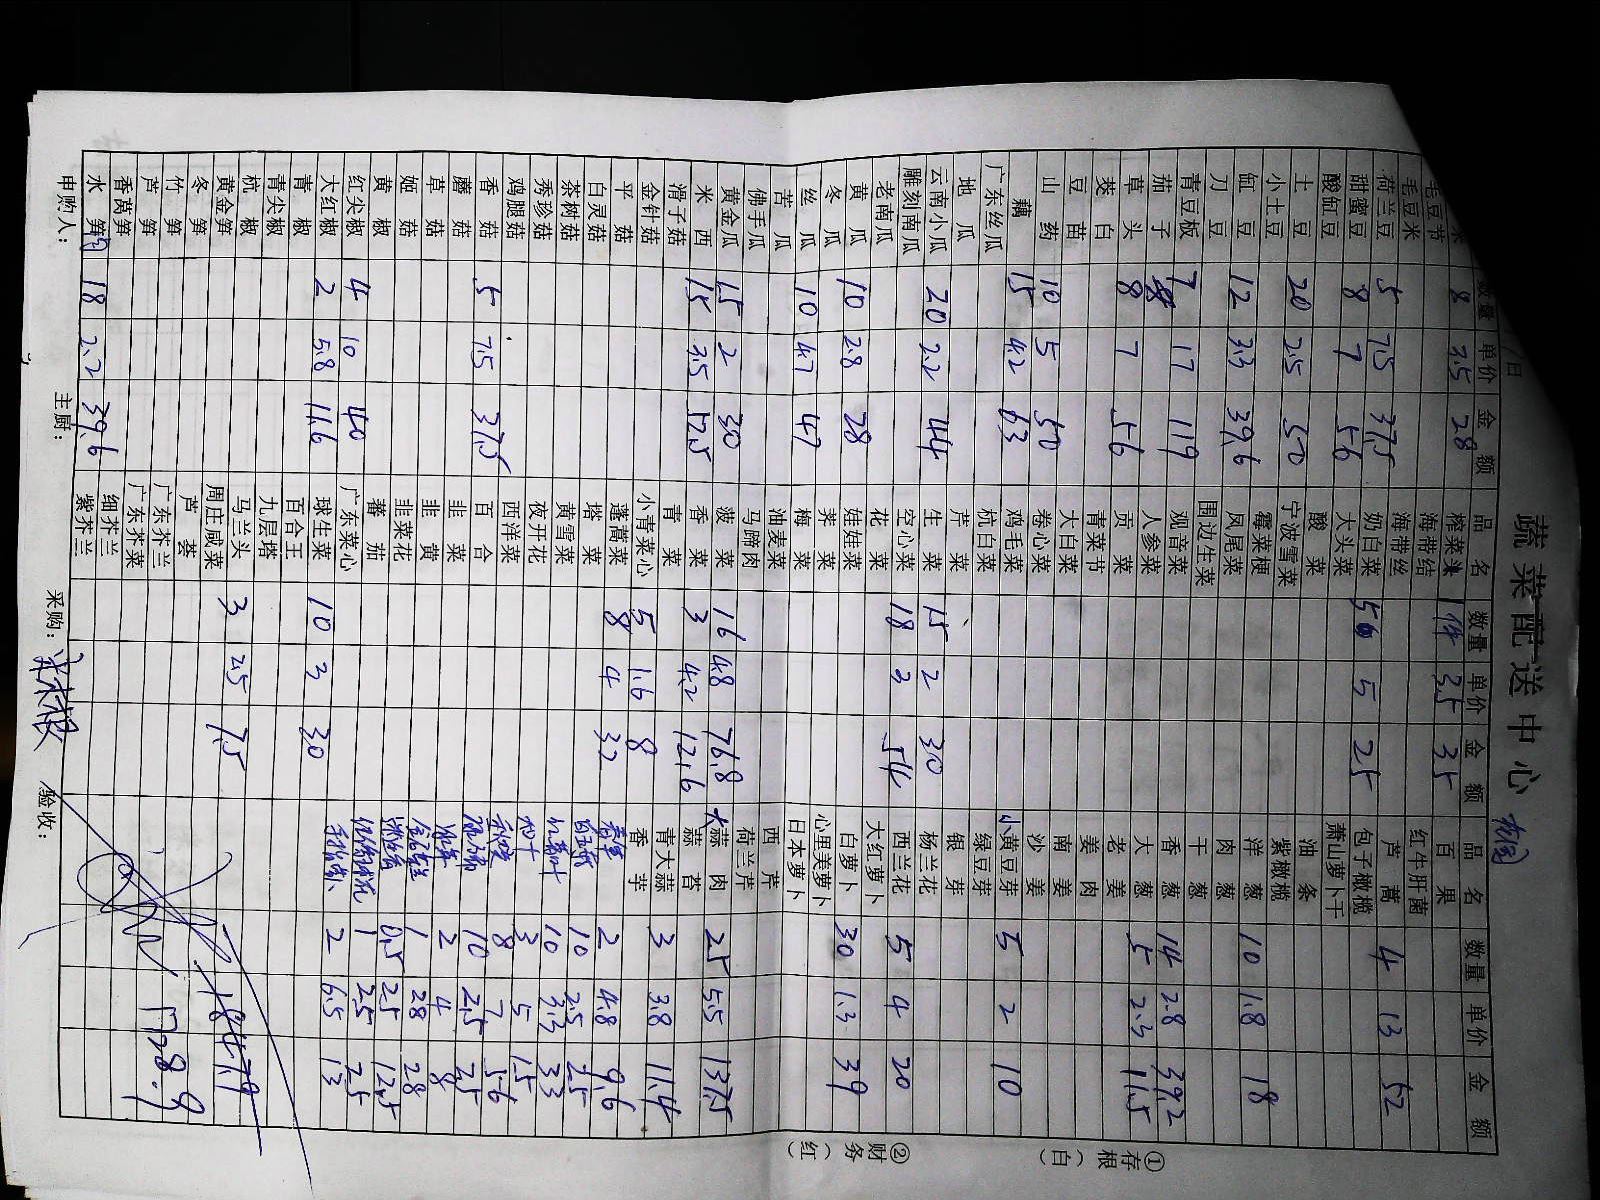 蔬菜配送中心
日
数量 单价 金额 品名 数量 单价 金额 品名 数量 单价 金额
米 8 3.5 28 榨菜头 1件 35 35 百果
毛豆节 海带结 红牛肝菌
毛豆米 海带丝 芦蒿 4 13 52
荷兰豆 5 7.5 37.5 奶白菜 5 5 25 包子橄榄
甜蜜豆 8 7 56 大头菜 萧山萝卜干
酸缸豆 酸菜 油条
土豆 20 2.5 50 宁波雪菜 紫橄榄
小土豆 霉菜梗 洋葱 10 1.8 18
缸豆 12 3.3 39.6 凤尾菜 肉葱
刀豆 围边生菜 干葱
青豆板 7 17 119 观音菜 香葱 14 2.8 39.2
茄子 人参菜 大葱 5 2.3 11.5
草头 8 7 56 贡菜 老姜
茭白 青菜节 姜肉
豆苗 大白菜 南姜
山药 10 5 50 卷心菜 沙姜
藕 15 4.2 63 鸡毛菜 小黄豆芽 5 2 10
广东丝瓜 杭白菜 绿豆芽
地瓜 芹菜 银芽
云南小瓜 20 2.2 44 生菜 15 2 30 杨兰花
雕刻南瓜 空心菜 18 3 54 西兰花 5 4 20
老南瓜 花菜 大红萝卜
黄瓜 10 2.8 28 娃娃菜 白萝卜 30 1.3 39
冬瓜 荠菜 心里美萝卜
丝瓜 10 4.7 47 梅菜 日本萝卜
苦瓜 油麦菜 西芹
佛手瓜 马蹄肉 荷兰芹
黄金瓜 15 2 30 菠菜 16 4.8 76.8 大蒜肉 25 5.5 137.5
米西 15 3.5 52.5 香菜 3 4.2 12.6 蒜苔
滑子菇 青菜 青大蒜 3 3.8 11.4
金针菇 小青菜心 5 1.6 8 香芋
平菇 蓬蒿菜 8 4 32 2 4.8 9.6
白灵菇 塔菜 白玉菇 10 2.5 25
茶树菇 黄雪菜 红薯叶 10 3.3 33
秀珍菇 夜开花 3 5 15
鸡腿菇 西洋菜 8 7 56
香菇 5 7.5 37.5 百合 10 2.5 25
蘑菇 韭菜 2 4 8
草菇 韭黄 1 28 28
姬菇 韭菜花 0.5 25 12.5
黄椒 蕃茄 1 25 25
红尖椒 4 10 40 广东菜心 2 6.5 13
大红椒 2 5.8 11.6 球生菜 10 3 30
青椒 百合王
青尖椒 九层塔
杭椒 马兰头 3 2.5 7.5
黄金笋 周庄咸菜 1847.9
冬笋 芦荟
竹笋 广东芥兰 1728.9
芦笋 广东芥菜
香莴笋 细芥兰
水笋 18 2.2 39.6 紫芥兰
申购人: 主厨: 采购: 验收:
①存根(白)
②财务(红)